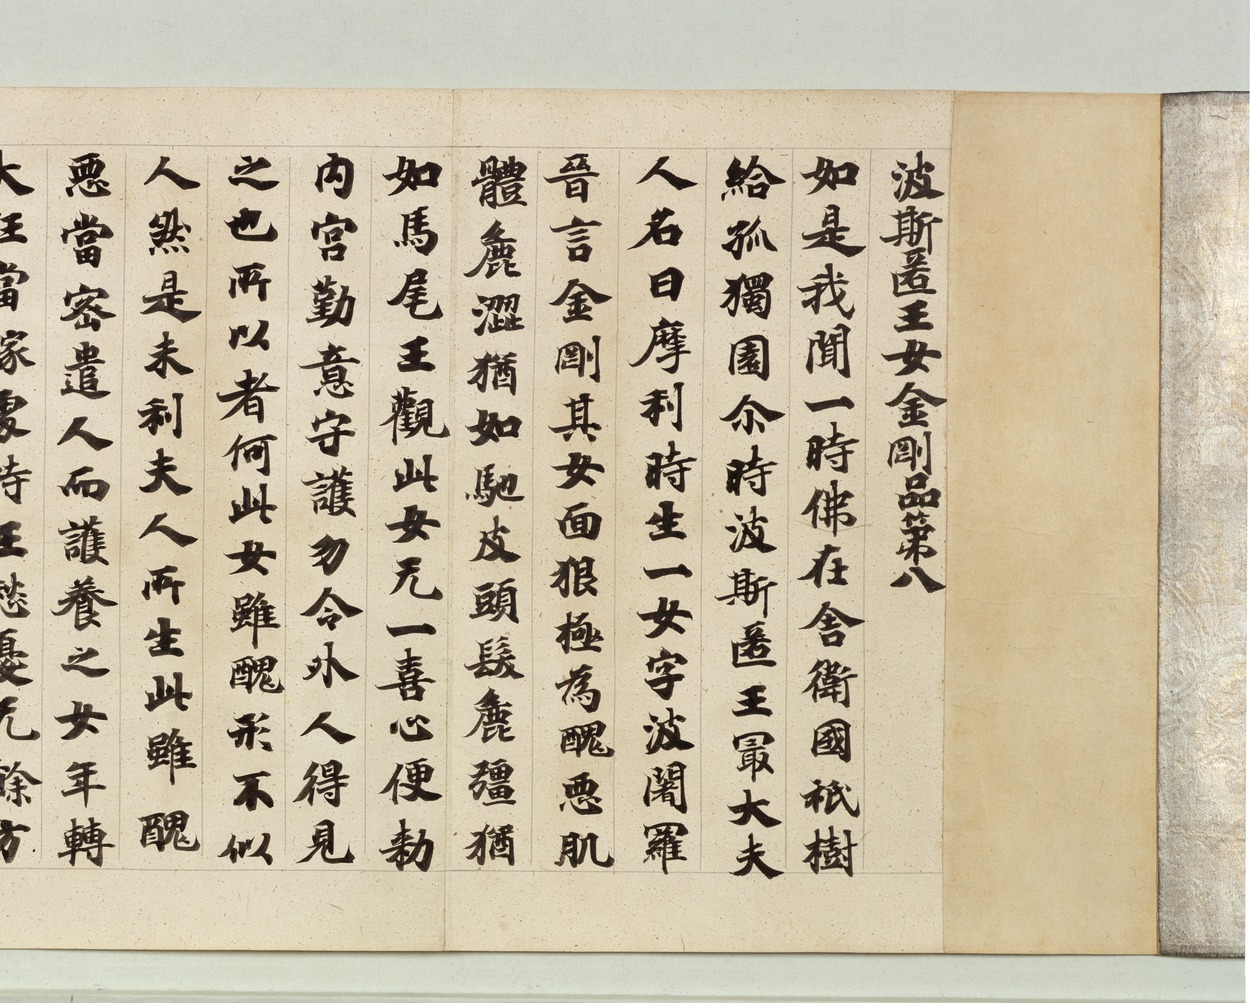 波斯匿王女金剛品第八
如是我聞一時佛在舍衛國祇樹
給孤獨園尒時波斯匿王冣大夫
人名曰摩利時生一女字波闍羅
晉言金剛其女面狠極為醜惡肌
體麁澀猶如馳皮頭髮麁彊猶
如馬尾王觀此女无一喜心便勑
内宮勤意守護勿令外人得見
之也所以者何此女雖醜形不似
人然是末利夫人所生此雖醜
惡當密遣人而護養之女年轉
大任當嫁處時王愁憂无餘方